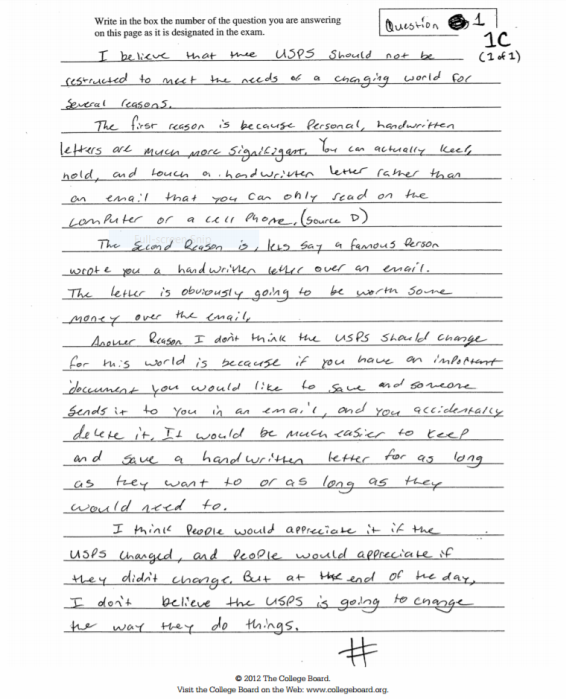 Write in the box the number of the question you are answering
on this page as it is designated in the exam.
Question 1
1C
(1 of 1)
I believe that thee USPS should not be
restructed to meet the needs of a changing world for
several reasons.
The first reason is because Personal, handwritten
letters are much more significant. You can actually keep,
hold, and touch a handwritten letter rather than
an email that you can only read on the
computer or a cell Phone. (Source D)
The Second Reason is, lets say a famous Person
wrote you a handwritten letter over an email.
The letter is obviously going to be worth some
money over the email.
Another Reason I don't think the USPS should change
for this world is because if you have an important
document you would like to save and someone
sends it to you in an email, and you accidentally
delete it. It would be much easier to keep
and save a handwritten letter for as long
as they want to or as long as they
would need to.
I think People would appreciate it if the
USPS changed, and People would appreciate if
they didn't change. But at the end of the day,
I don't believe the USPS is going to change
the way they do things.
#
© 2012 The College Board.
Visit the College Board on the Web: www.collegeboard.org.